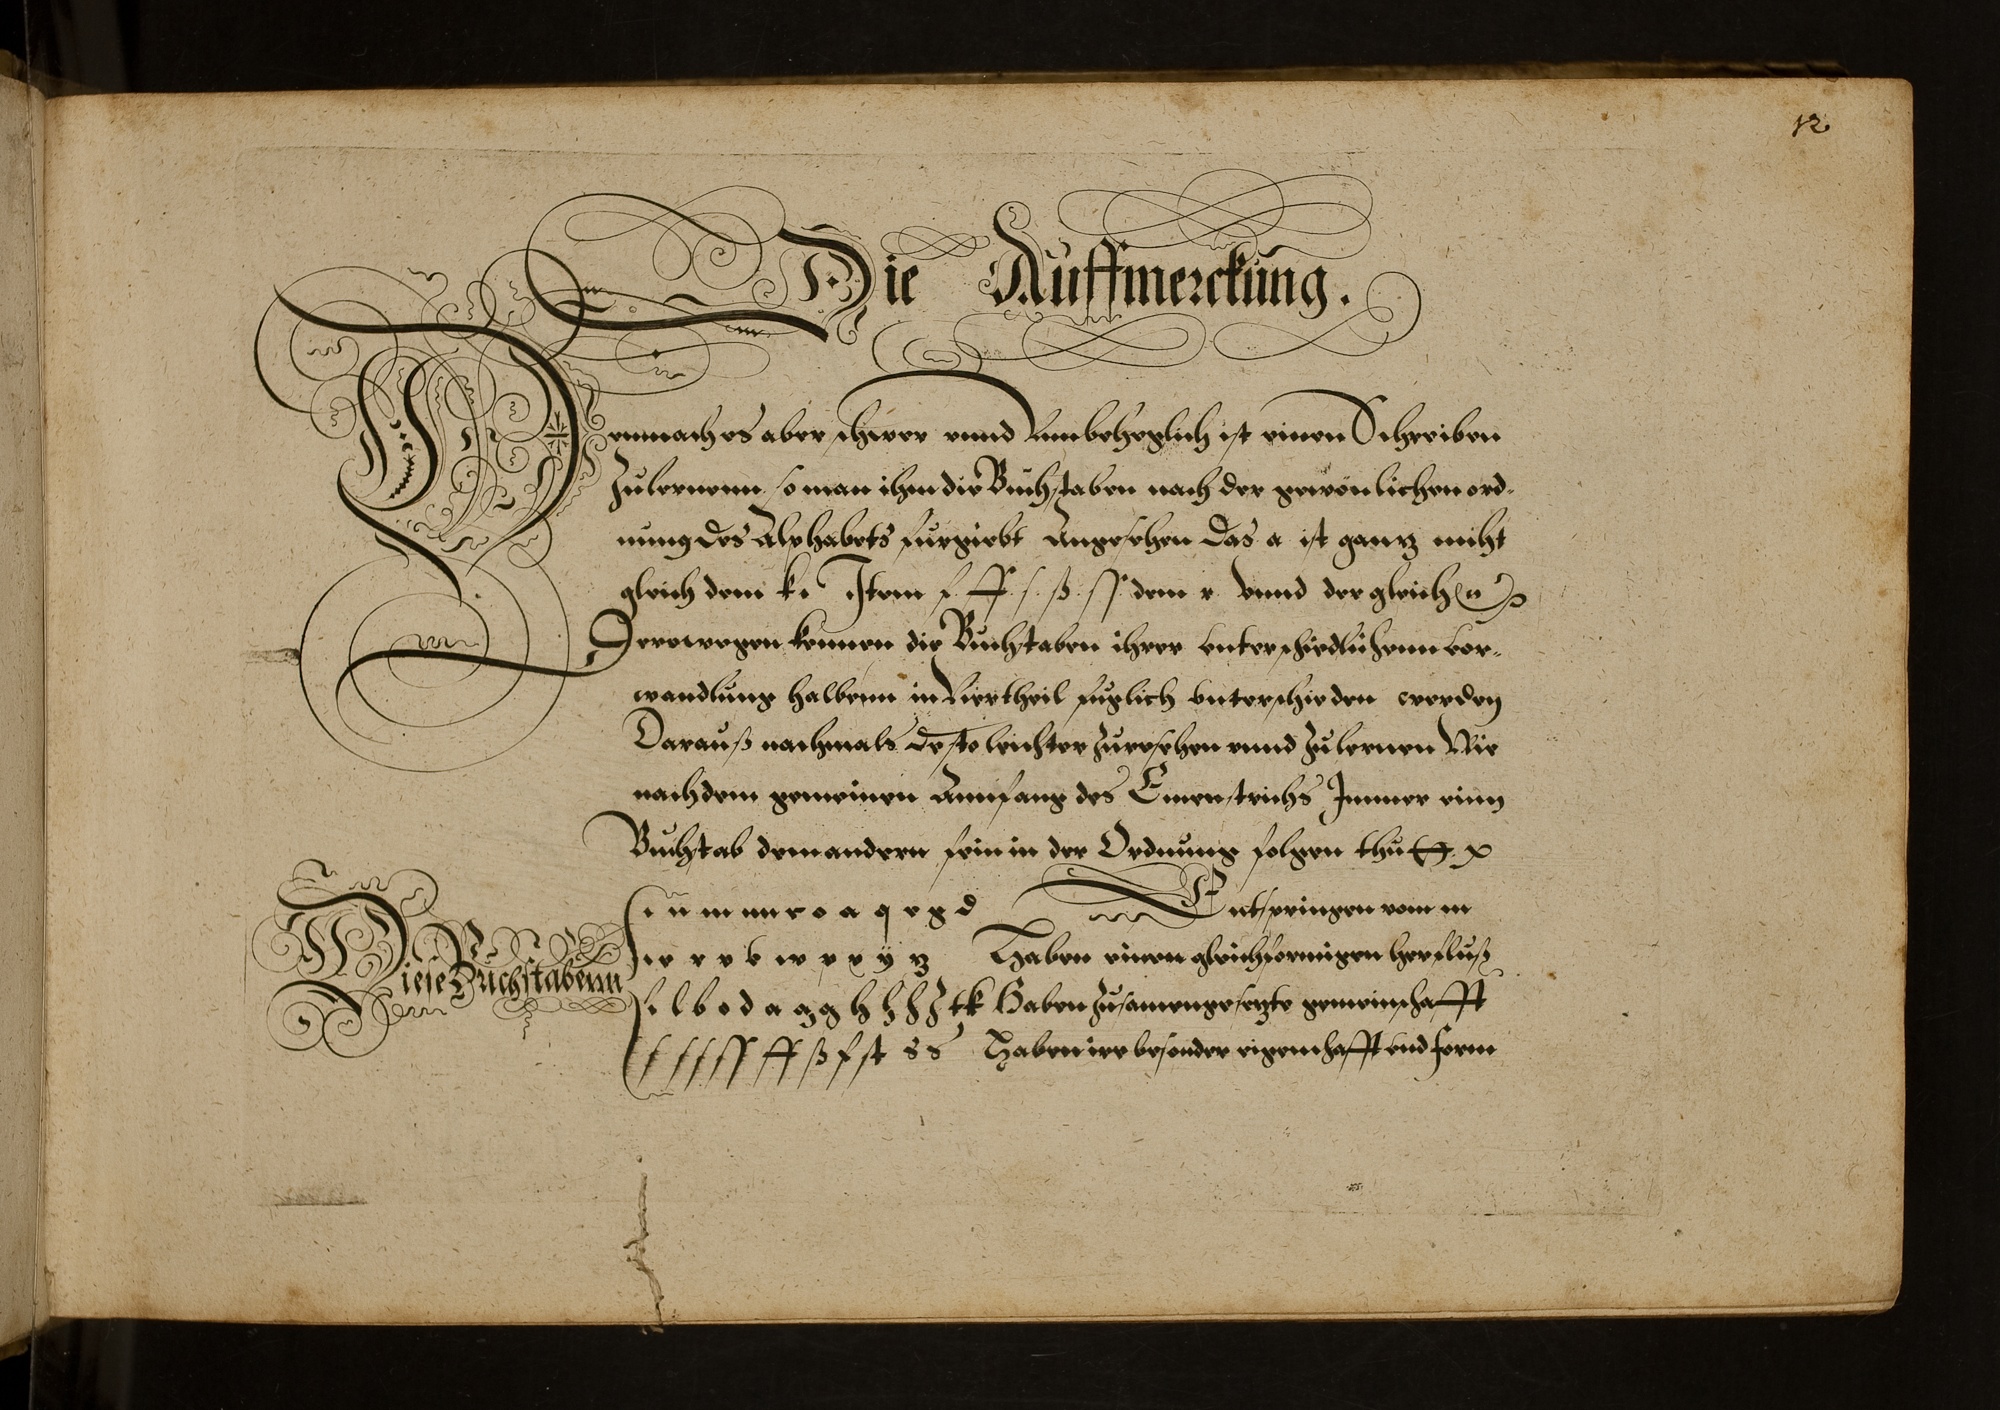 12
Die Auffmerckung.
Demnach es aber schwer unnd Unnbeheglich ist einen Schreiben
Zulernenn so man ihm die Buchstaben nach der gewönlichen ord-
nung des Alphabets furgiebt Angesehen Das a ist gantz nicht
gleich dem k. Item f ff s ß ss dem r Vnnd der gleichen
Derowegen kennen die Buchstaben ihrer vnterschiedlichenn vor-
wandlung halbenn in Viertheil fuglich vnterschieden werden
Darauß nachmals desto leichter Zuersehen unnd Zulernen Wie
nach dem gemeinen Annfang des Einen strichs Immer einn
Buchstab dem andern fein in der Ordnung folgen thutt
Diese Buchstabenn
i u m nn c o a q e g d Entspringen vom m
w r v b w p x ÿ z Haben einen gleichformigen herfluß
i l b o d a g g h h h Z t k Haben Zusamengesetzte gemeinschafft
f f f ff ff ß f st s s Haben ire besonder eigenschafft vnd form